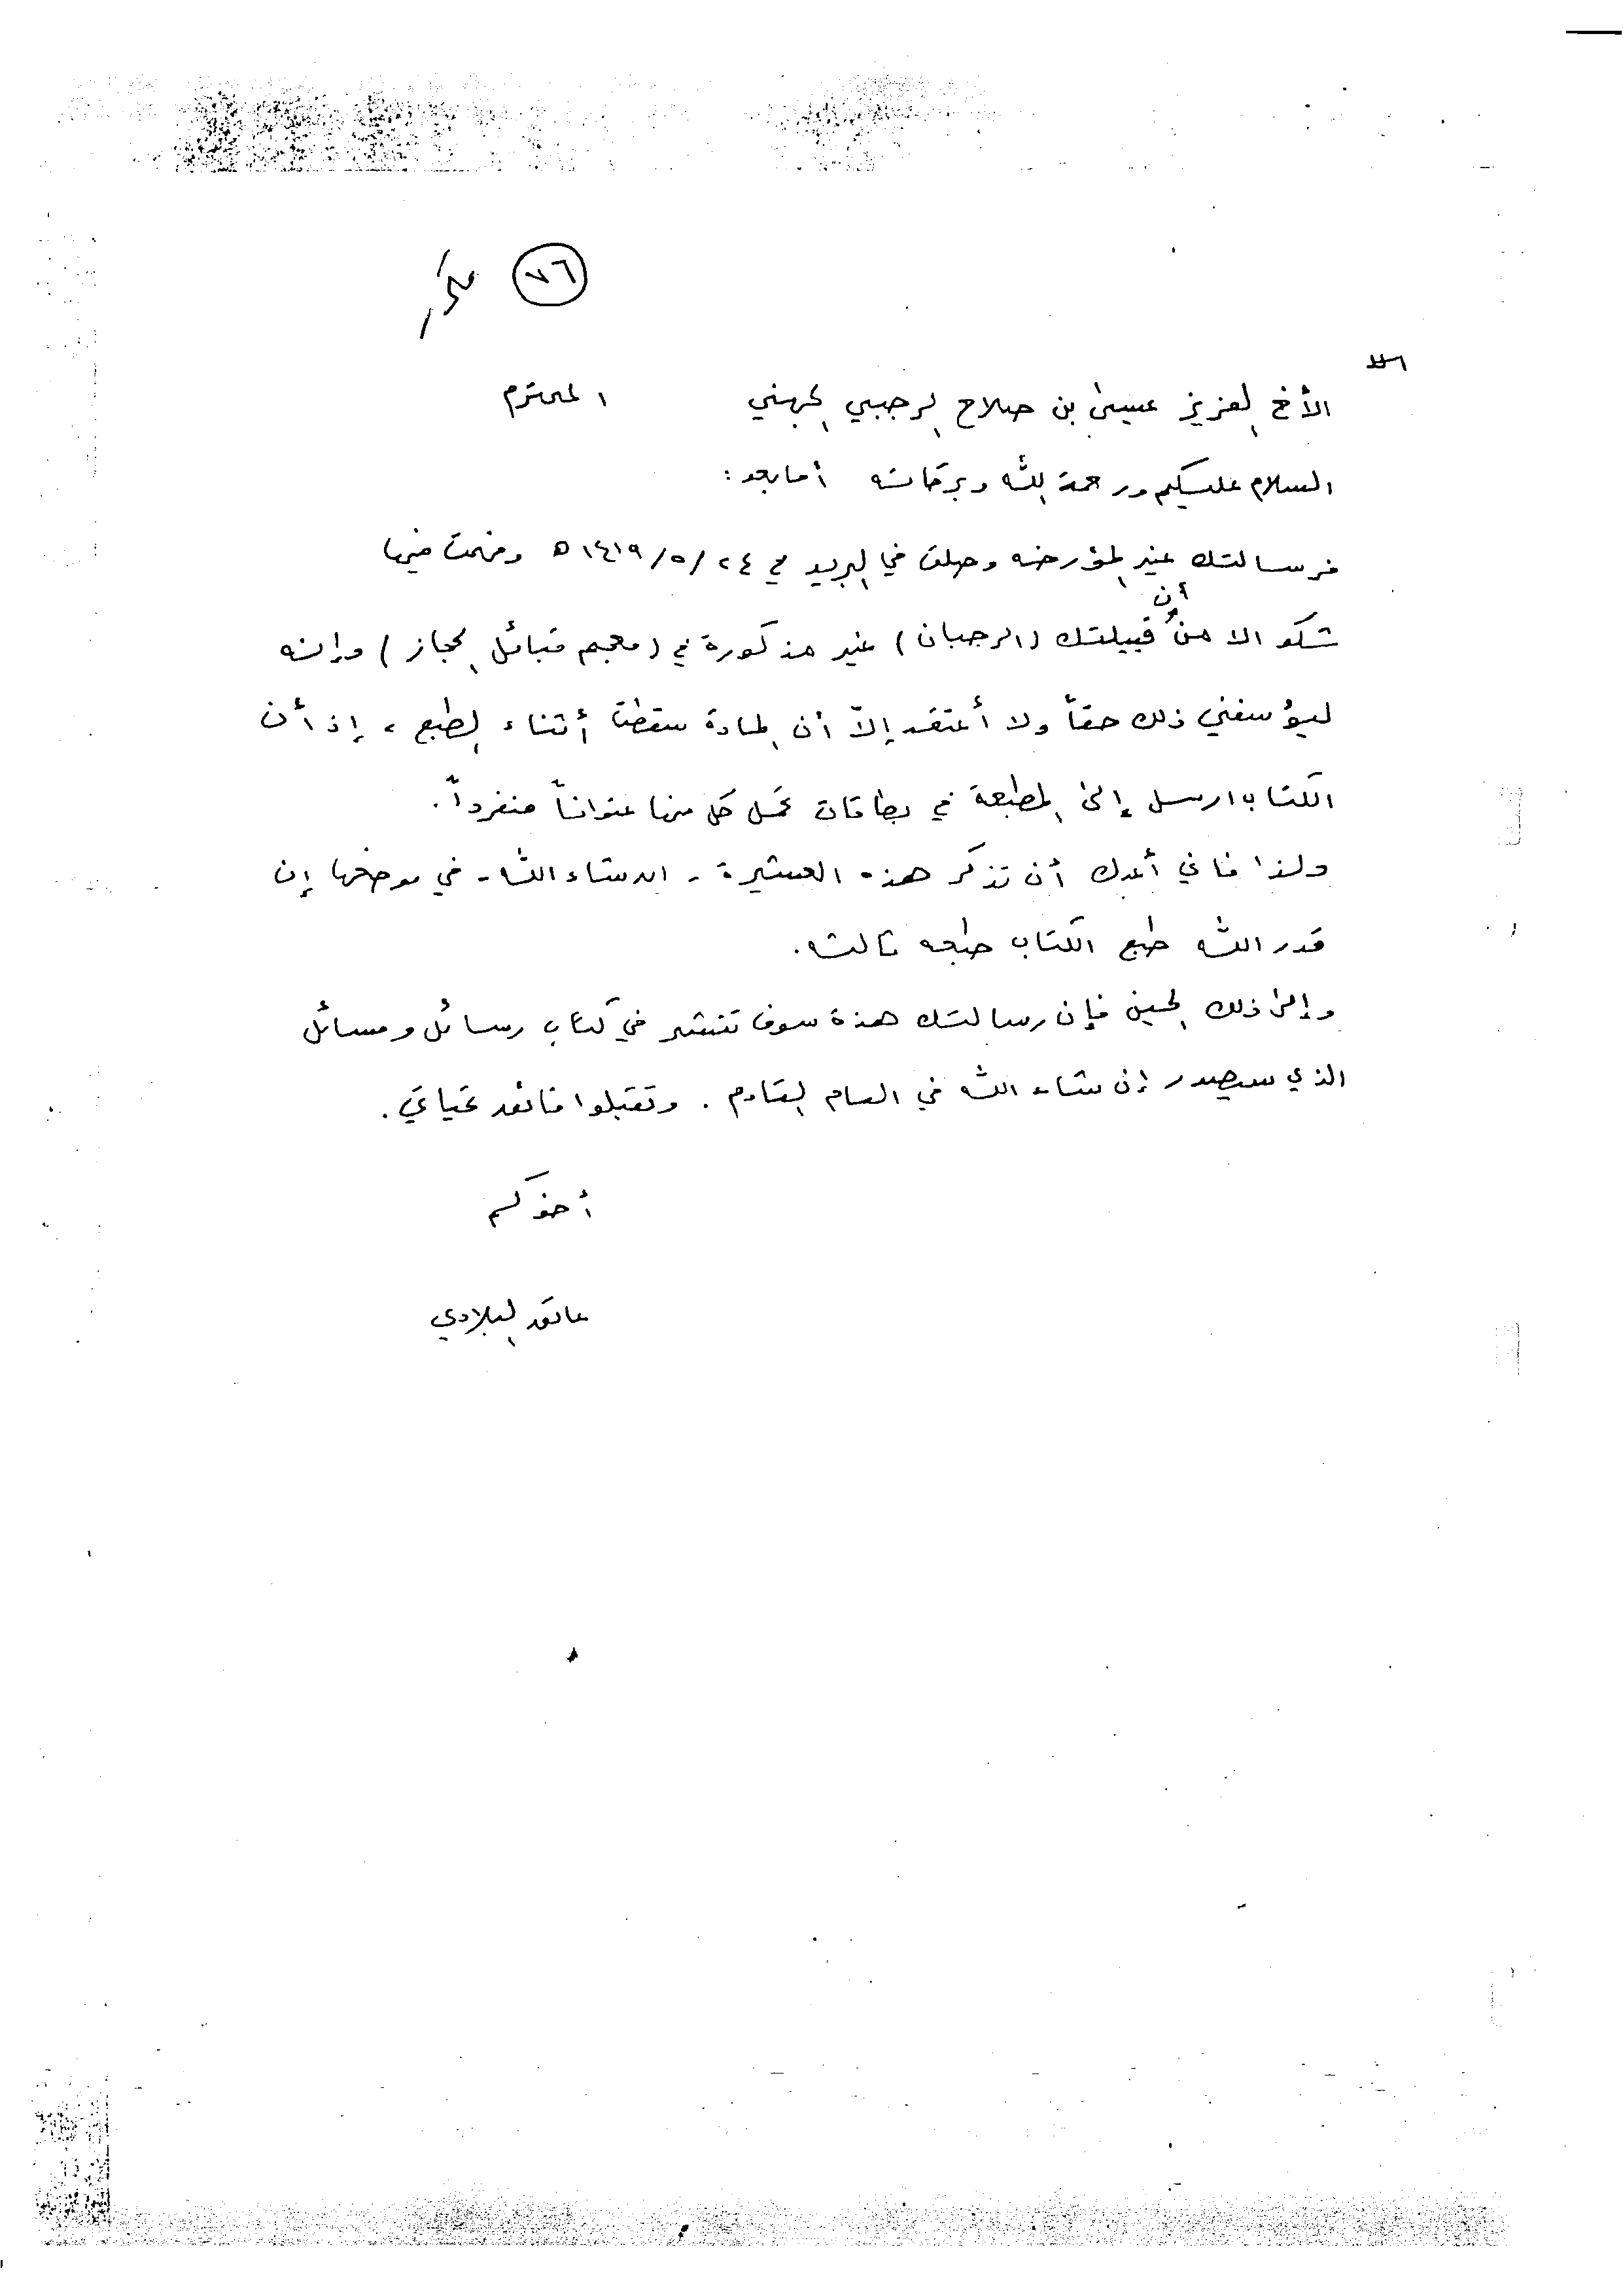 ٧٦ مكرر
الأخ العزيز عيسى بن صلاح الرجبي الجهني المحترم
السلام عليكم ورحمة الله وبركاته أما بعد:
فرسالتك غير المؤرخه وصلت في البريد في ٢٤/٥/١٤١٩ ه وفهمت فيها
شكواك من أن قبيلتك (الرجبان) غير مذكورة في (معجم قبائل الحجاز) وإنه
ليؤسفني ذلك حقاً ولا أعتقد إلاّ أن المادة سقطت أثناء الطبع، إذ أن
الكتاب ارسل إلى المطبعة في بطاقات تحمل كل منها عنواناً منفرداً.
ولذا فاني أعدك أن تذكر هذه العشيرة - ان شاء الله - في موضعها إن
قدر الله طبع الكتاب طبعه ثالثه.
وإلى ذلك الحين فإن رسالتك هذة سوف تنشر في كتاب رسائل ومسائل
الذي سيصدر إن شاء الله في العام القادم. وتقبلوا فائق تحياتي.
أخوكم
عاتق البلادي